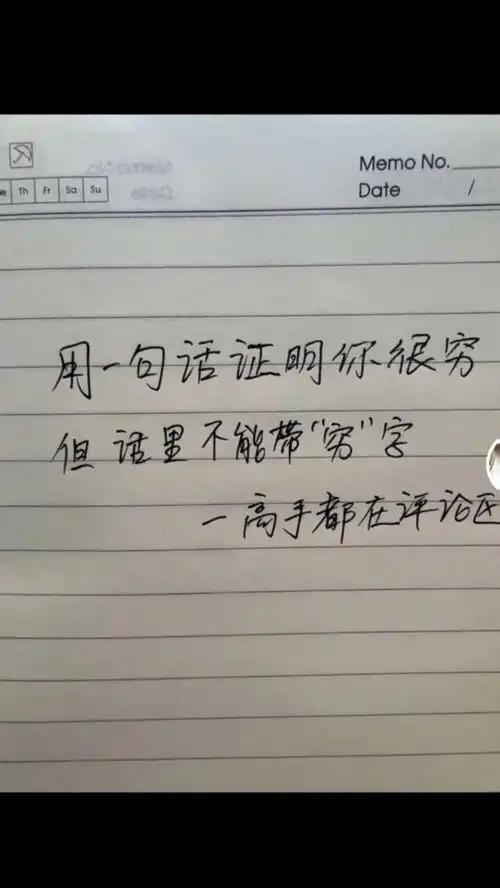 Memo No.
e Th Fr Sa Su
Date /
用一句话证明你很穷
但话里不能带"穷"字
一高手都在评论区